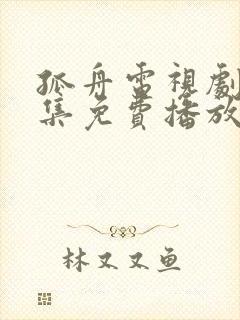 孤舟電視劇
集免費播放
林又又鱼